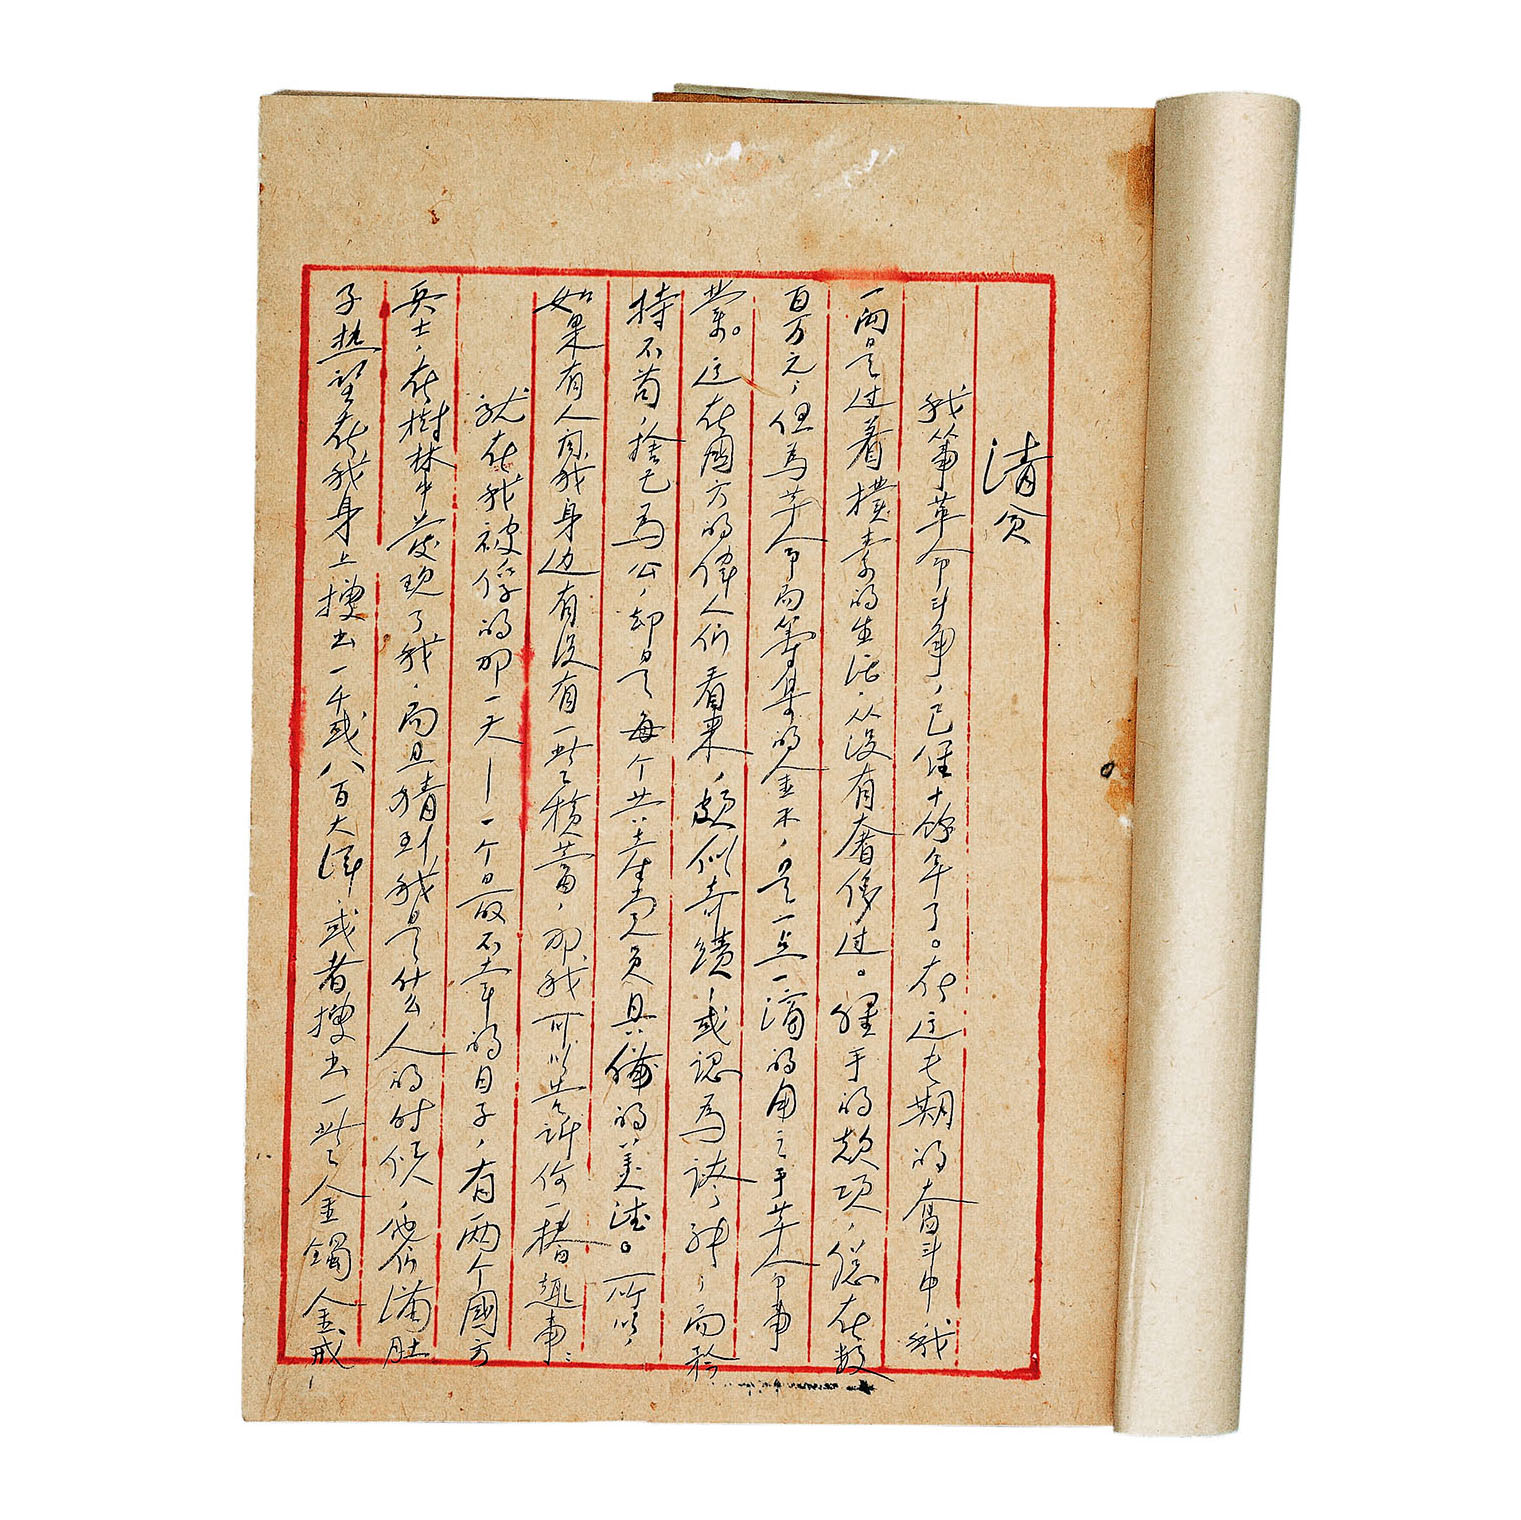 清貧
我從事革命斗争，已経十餘年了。在这長期的奮斗中，我
一向是过着樸素的生活，从没有奢侈过。経手的款項，總在数
百万元，但為革命而籌集的金錢，是一点一滴的用之于革命事
業。这在國方的偉人们看来，頗似奇蹟，或認為誇張，而矜
持不苟，捨己為公，却是每个共產党員具備的美德。所以，
如果有人問我身边有没有一些積蓄，那我可以告訴你一樁趣事：
就在我被俘的那一天——一个最不幸的日子，有两个國方
兵士，在樹林中發現了我，而且猜到我是什么人的时候，他们满肚
子热望在我身上搜出一千或八百大洋，或者搜出一些金鐲金戒